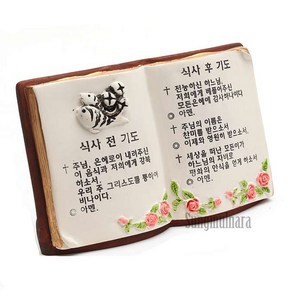 식사 전 기도
✝ 주님, 은혜로이 내려주신
이 음식과 저희에게 강복
하소서.
우리 주 그리스도를 통하여
비나이다.
◎ 아멘.
식사 후 기도
✝ 전능하신 하느님,
저희에게 베풀어주신
모든은혜에 감사하나이다
◎ 아멘.
✝ 주님의 이름은
찬미를 받으소서
◎ 이제와 영원히 받으소서.
✝ 세상을 떠난 모든이가
하느님의 자비로
평화의 안식을 얻게 하소서
◎ 아멘.
Sungmulnara